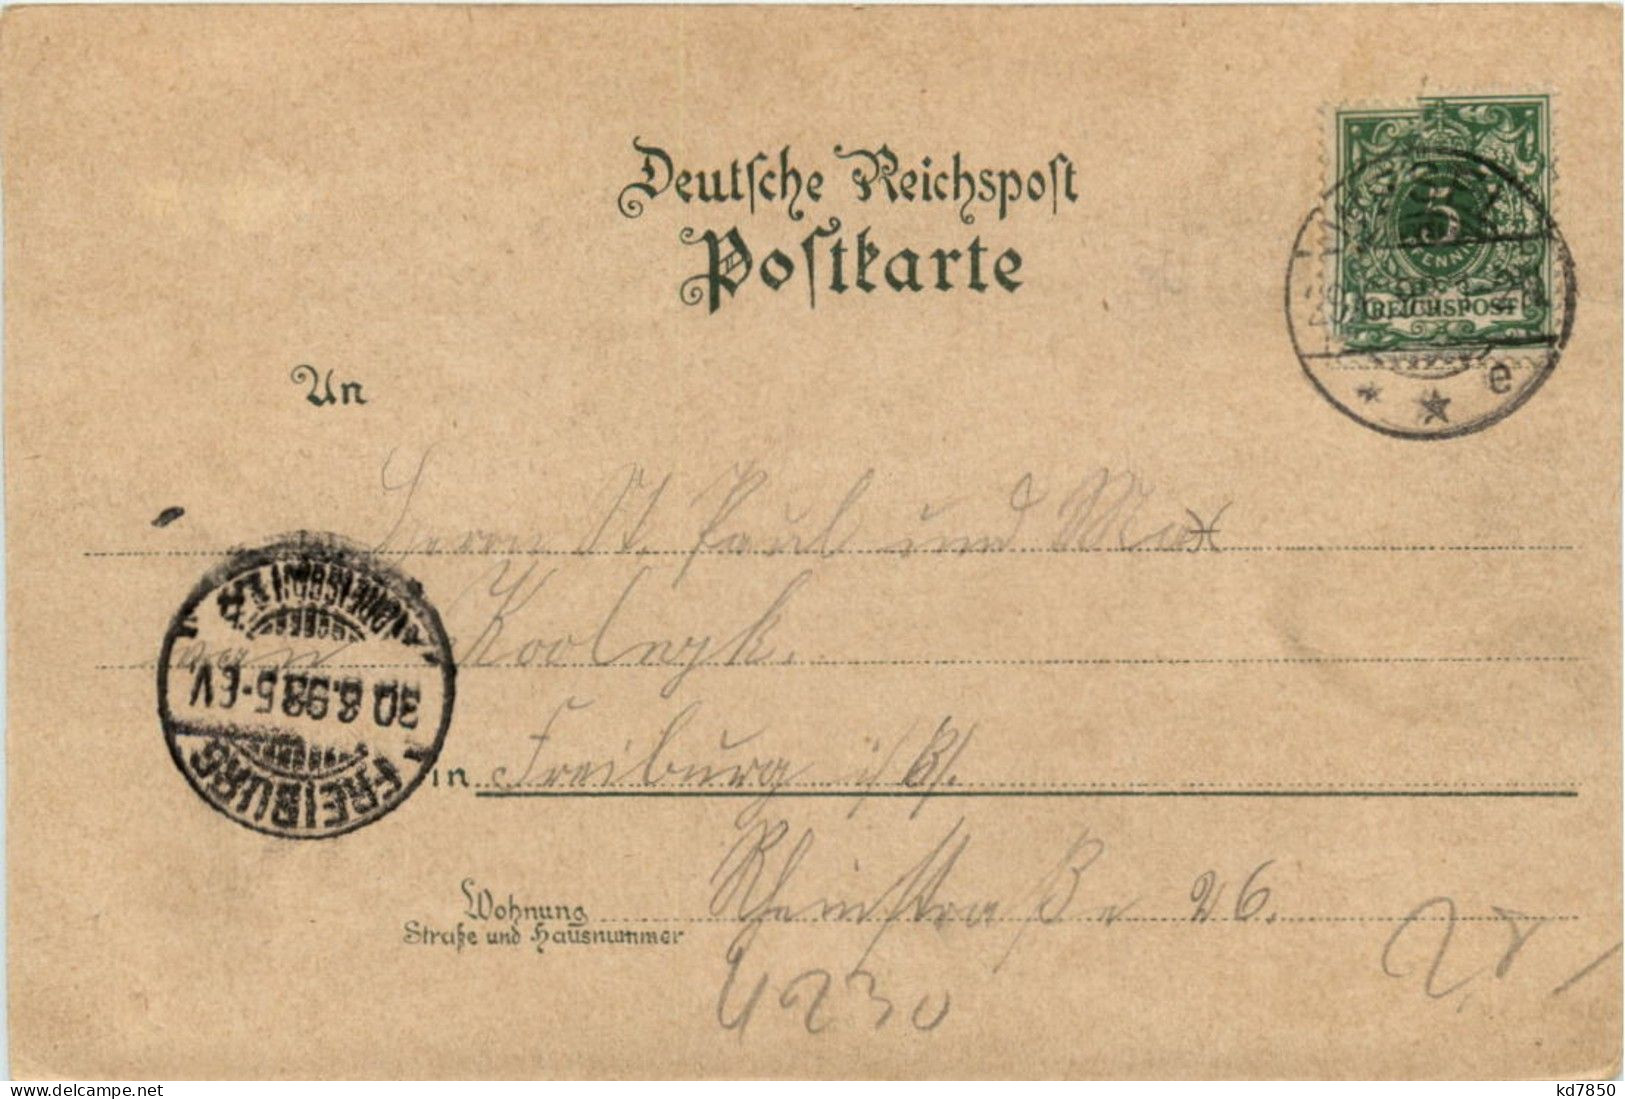 Deutsche Reichspost
Postkarte
5
PFENNIG
REICHSPOST
e
An
Herrn St. Paul und Max
von
in Freiburg i/B/.
FREIBURG
30.6.98 5-6V
Wohnung
Straße und Hausnummer
Rheinstraße 26.
4230
www.delcampe.net
kd7850